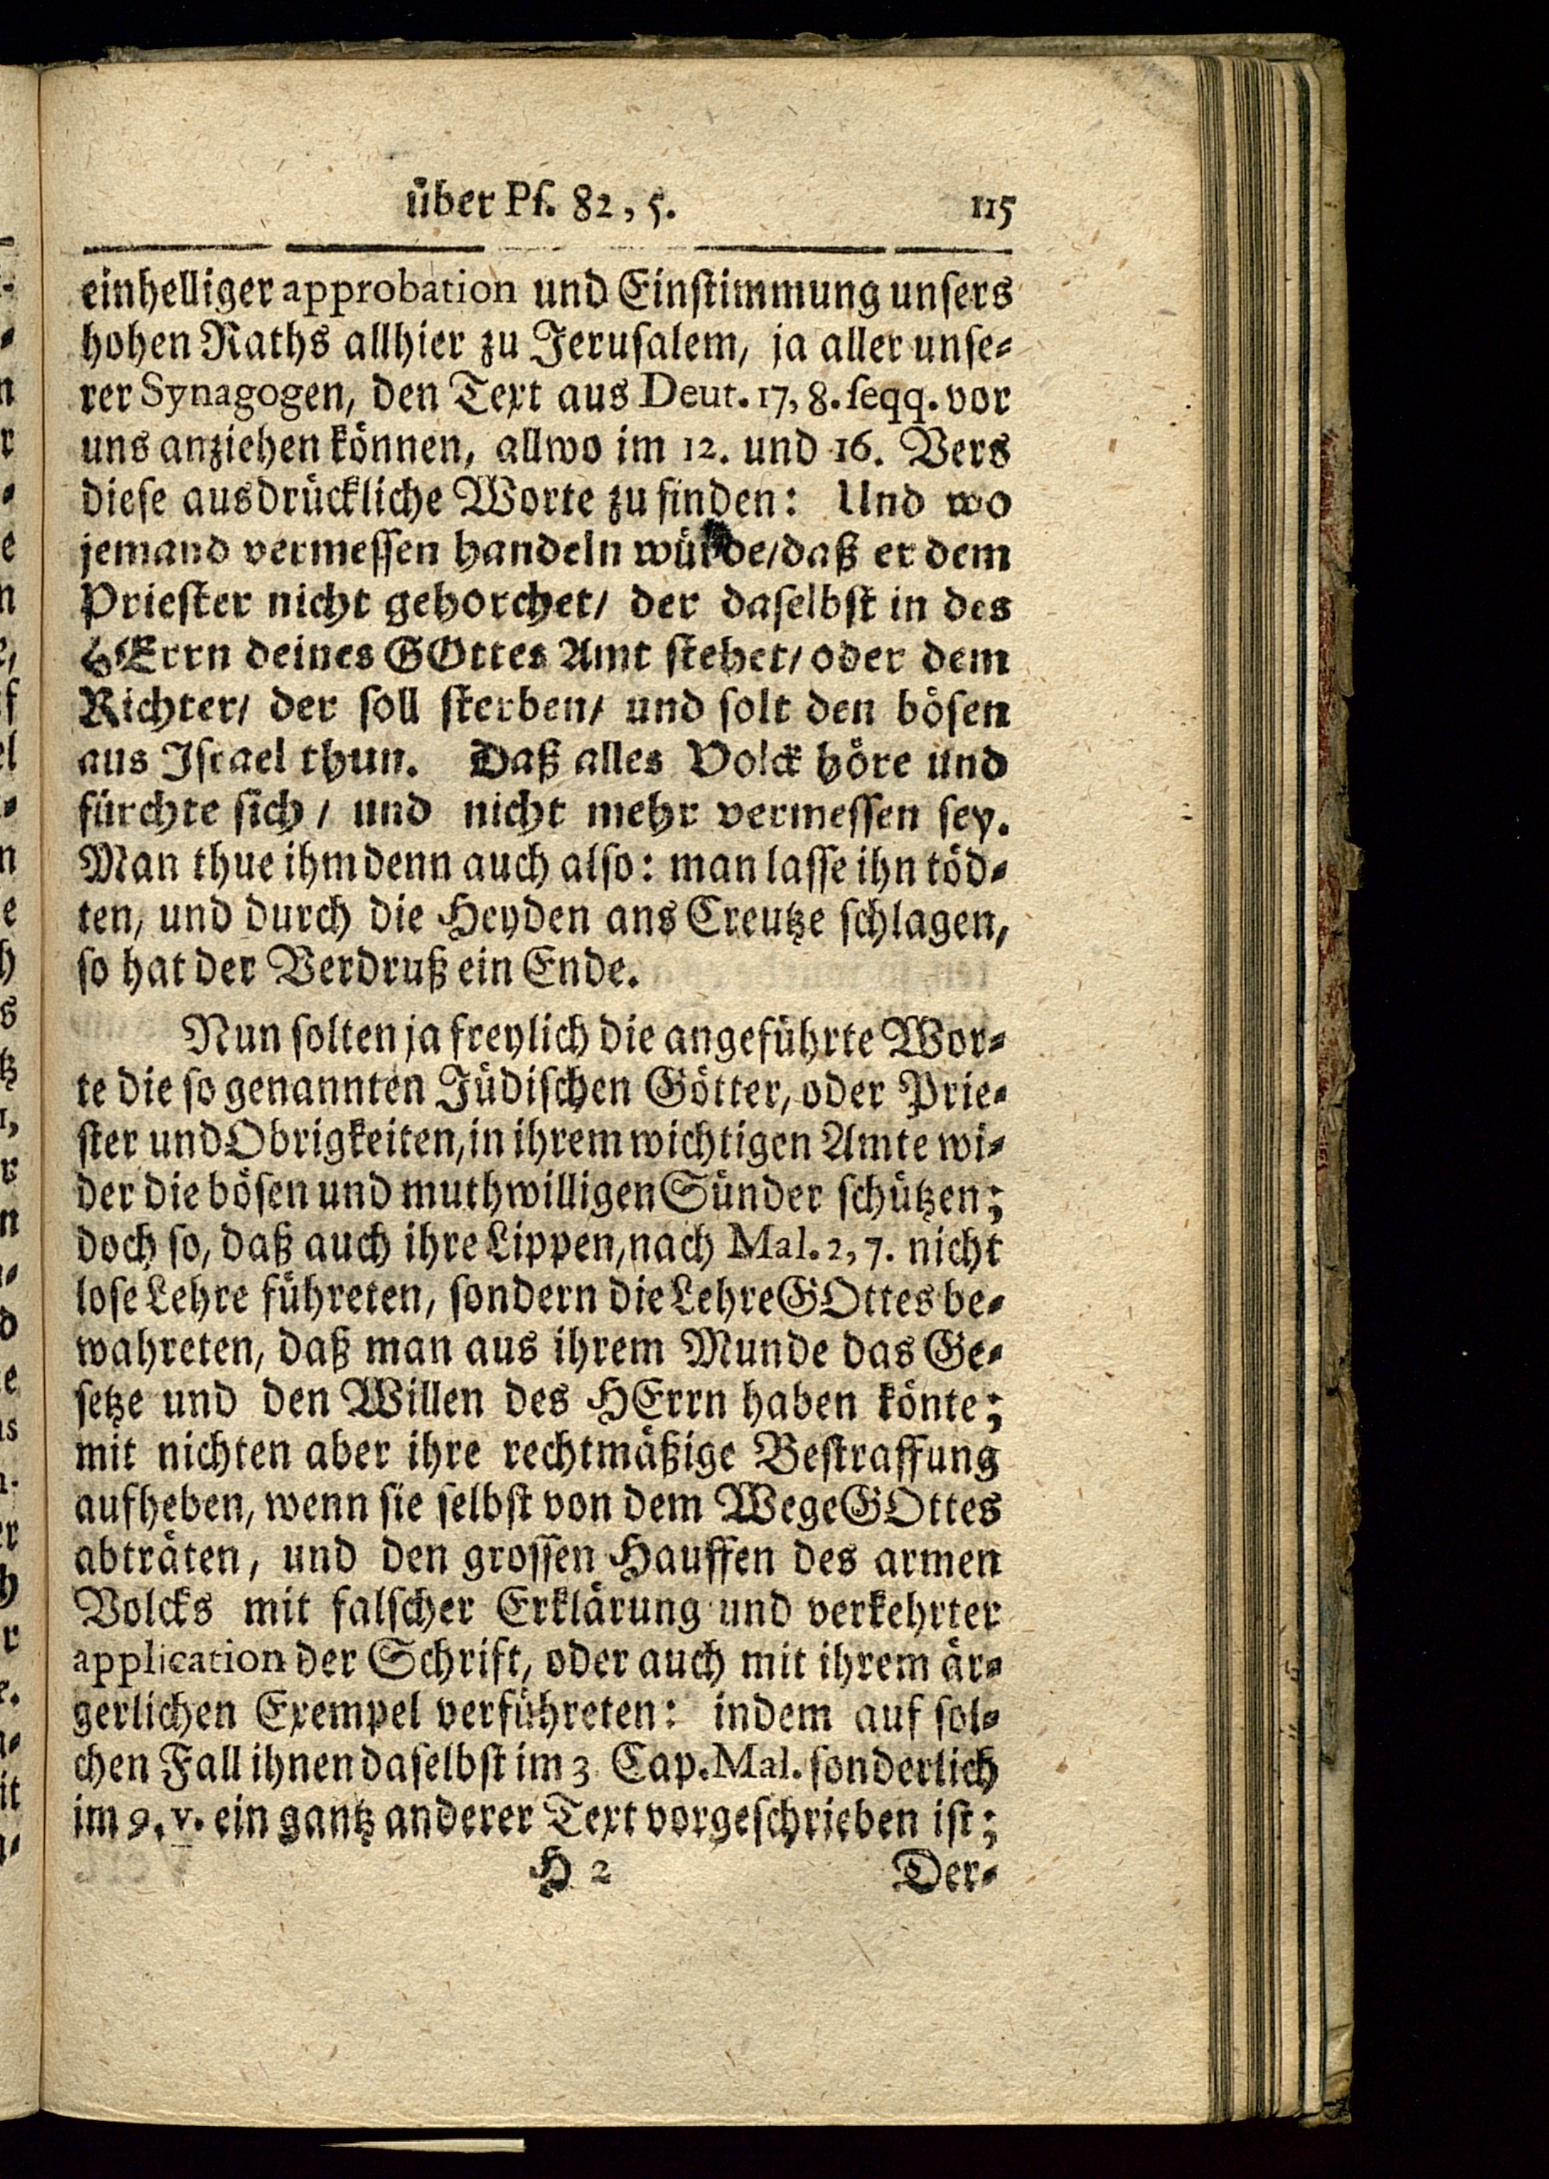 über Pſ. 82, 5. 115
einhelliger approbation und Einſtimmung unſers
hohen Raths allhier zu Jeruſalem, ja aller unſe-
rer Synagogen, den Text aus Deut. 17, 8. ſeqq. vor
uns anziehen können, allwo im 12. und 16. Vers
dieſe ausdrückliche Worte zu finden: Und wo
jemand vermeſſen handeln würde/ daß er dem
Prieſter nicht gehorchet/ der daſelbſt in des
HErrn deines GOttes Amt ſtehet/ oder dem
Richter/ der ſoll ſterben/ und ſolt den böſen
aus Iſrael thun. Daß alles Volck höre und
fürchte ſich / und nicht mehr vermeſſen ſey.
Man thue ihm denn auch alſo: man laſſe ihn töd-
ten, und durch die Heyden ans Creutze ſchlagen,
ſo hat der Verdruß ein Ende.
Nun ſolten ja freylich die angeführte Wor-
te die ſo genannten Jüdiſchen Götter, oder Prie-
ſter und Obrigkeiten, in ihrem wichtigen Amte wi-
der die böſen und muthwilligen Sünder ſchützen;
doch ſo, daß auch ihre Lippen, nach Mal. 2, 7. nicht
loſe Lehre führeten, ſondern die Lehre GOttes be-
wahreten, daß man aus ihrem Munde das Ge-
ſetze und den Willen des HErrn haben könte;
mit nichten aber ihre rechtmäßige Beſtraffung
aufheben, wenn ſie ſelbſt von dem Wege GOttes
abträten, und den groſſen Hauffen des armen
Volcks mit falſcher Erklärung und verkehrter
application der Schrift, oder auch mit ihrem är-
gerlichen Exempel verführeten: indem auf ſol-
chen Fall ihnen daſelbſt im 3 Cap. Mal. ſonderlich
im 9. v. ein gantz anderer Text vorgeſchrieben iſt;
H 2 Der-